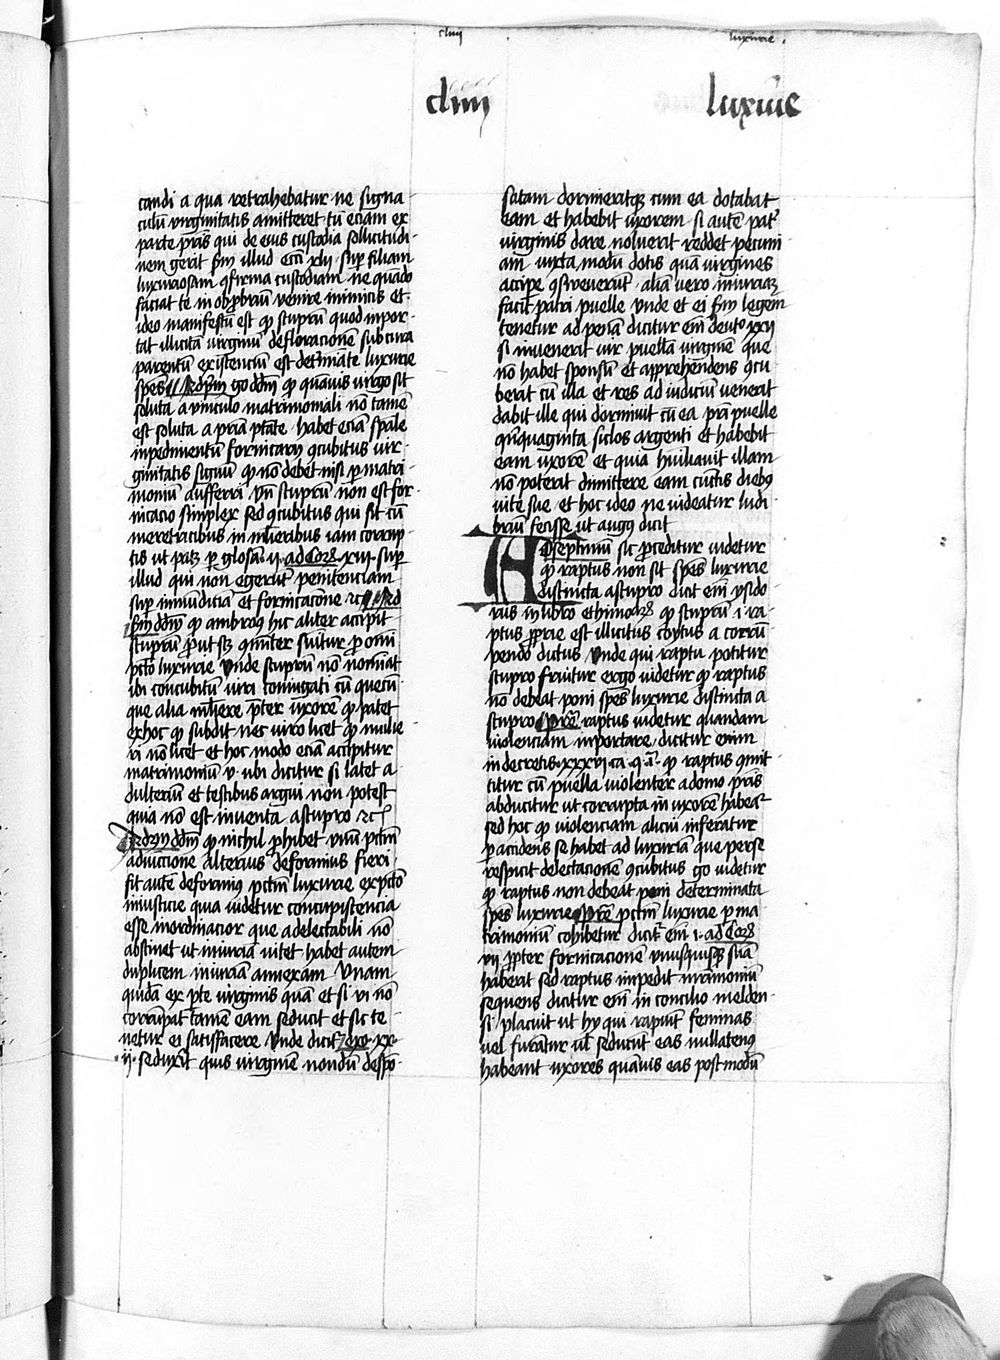 cliiii luxurie
cliiii luxurie
candi a qua retrahebatur ne signa
culū virginitatis amitteret tū eciam ex
parte pr̄is qui de eius custodia sollicitudi
nem gerit sm̄ illud ecci xlii sup̄ filiam
luxuriosam ꝯfirma custodiam ne quādo
faciat te in obprobriū venire inimicis et
ideo manifestū est ꝙ stuprū quod impor
tat illicitā virginū defloracionē sub cura
parentū existenciū est determīate luxurie
spēs Ad pm̄ gͦ dd̄m ꝙ quāuis virgo sit
soluta a vinculo matrimoniali nō tamē
est soluta a pr̄ia ptāte habet eciā spāle
impedimentū fornicarii ꝯcubitus vir
ginitatis signū ꝙ nō debet nisi ꝑ matri
moniū aufferri vn̄ stuprū non est for
nicacio simplex sed ꝯcubitus qui fit cū
meretricibus in mulieribus iam corrup
tis ut patꝫ ꝑ glosā ii ad Cor xii sup̄
illud qui non egerūt penitenciam
sup̄ inmūdiciā et fornicacione ⁊c Ad
sm̄ dd̄m ꝙ ambroꝰ hic aliter accipit
stuprū ꝓut sꝫ cōmīter sumitur ꝓ omī
pctō luxurie Unde stuprū nō nominat
ibi concubitū viri coniugati cū quecū
que alia mulīere p̄ter uxorē ꝙ patet
ex hoc ꝙ subdit nec viro licet ꝙ mulie
ri nō licet et hoc modo eciā accipitur
matrimoniū v ubi dicitur si latet a
dulteriū et testibus argui non potest
quia nō est inventa a stupro ⁊c
Ad 3m dd̄m ꝙ nichil ꝓhibet unū pctm̄
adiunccione alterius deformius fieri
fit autē deformiꝰ pctm̄ luxurie ex pctō
iniusticie quia videtur concupiscencia
esse inordinacior que a delectabili nō
abstinet ut iniuriā vitet habet autem
duplicem iniuriā annexam Unam
quidā ex ꝑte virginis quā et si vi nō
corrūpat tamē eam seducit et sic te
netur ei satisfacere Unde dicit exo xx
ii seduxit quis virginē nondū despō
satam dormieritqꝫ cum ea dotabat
eam et habebit uxorem si autē pat
virginis dare noluerit reddet pecuni
am iuxta modū dotis quā virgines
accipe ꝯsueverūt aliā vero iniuriaꝫ
facit patri puelle Unde et ei sm̄ legem
tenetur ad penā dicitur em̄ deuto xxii
si invenerit vir puellā virginē que
nō habet sponsū et apprehendens ꝯcu
berit cū illa et res ad iudiciū venerit
dabit ille qui dormivit cū ea pr̄i puelle
quīquaginta siclos argenti et habebit
eam uxorē et quia humiliavit illam
nō poterit dimittere eam cūctis diebꝰ
vite sue et hoc ideo ne videatur ludi
briū fecisse ut augꝰ dicit
AD septimū sic ꝓceditur videtur
ꝙ raptus non sit spēs luxurie
distincta a stupro dicit em̄ ysido
rus in libro ethimoꝝ ꝙ stuprū i ra
ptus ꝓprie est illicitus coytus a corrū
pendo dictus Unde qui raptu potitur
stupro fruitur ergo videtur ꝙ raptus
nō debeat poni spēs luxurie distincta a
stupro Prē raptus videtur quandam
violenciam importare dicitur enim
in decretis xxxvi ca q i ꝙ raptus ꝯmit
titur cū puella violenter a domo pr̄is
abducitur ut corrupta in uxorē habeat
sed hoc ꝙ violenciam alicui inferatur
ꝑ accidens se habet ad luxuriā que per se
respicit delectacionē ꝯcubitus gͦ videtur
ꝙ raptus non debeat poni determinata
spēs luxurie Prē pctm̄ luxurie ꝑ ma
trimoniū cohibetur dicit em̄ i ad Cor
vii ꝓpter fornicacionē unusquisqꝫ suā
habeat sed raptus impedit mr̄imoniū
sequens dicitur em̄ in concilio melden
si placuit ut hy qui rapiūt feminas
vel furātur ul seducūt eas nullatenꝰ
habeant uxores quāvis eas postmodū